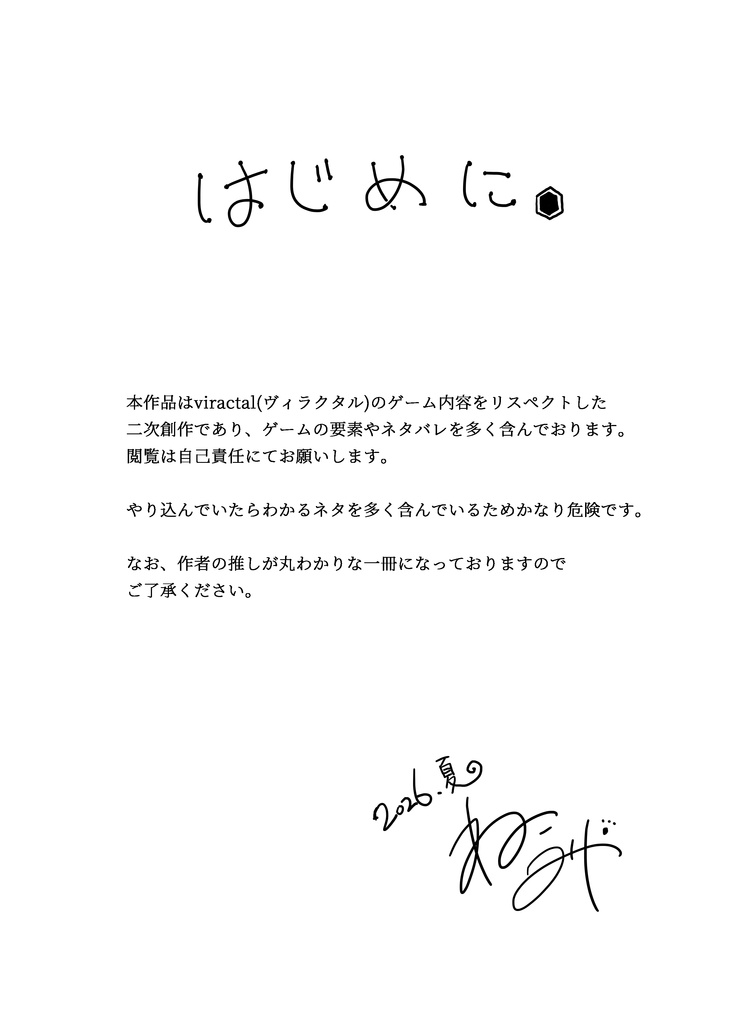 はじめに
本作品はviractal(ヴィラクタル)のゲーム内容をリスペクトした
二次創作であり、ゲームの要素やネタバレを多く含んでおります。
閲覧は自己責任にてお願いします。
やり込んでいたらわかるネタを多く含んでいるためかなり危険です。
なお、作者の推しが丸わかりな一冊になっておりますので
ご了承ください。
2026.夏